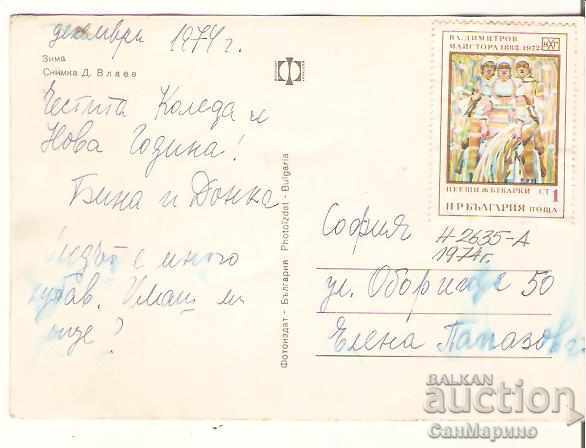 декември 1974 г.
Зима
Снимка Д. Влаев
Честита Коледа и
Нова Година!
Бина и Донка
е много
хубав. Имаш ли
още?
Фотоиздат - България Photoizdat - Bulgaria
ВЛ. ДИМИТРОВ
МАЙСТОРА 1882-1972
ПЕЕЩИ ЖЕТВАРКИ СТ 1
НР БЪЛГАРИЯ ПОЩА
София
Н 2635-А
1974г.
ул. Оборище 50
Елена Папазов
BALKAN
auction
СанМарино